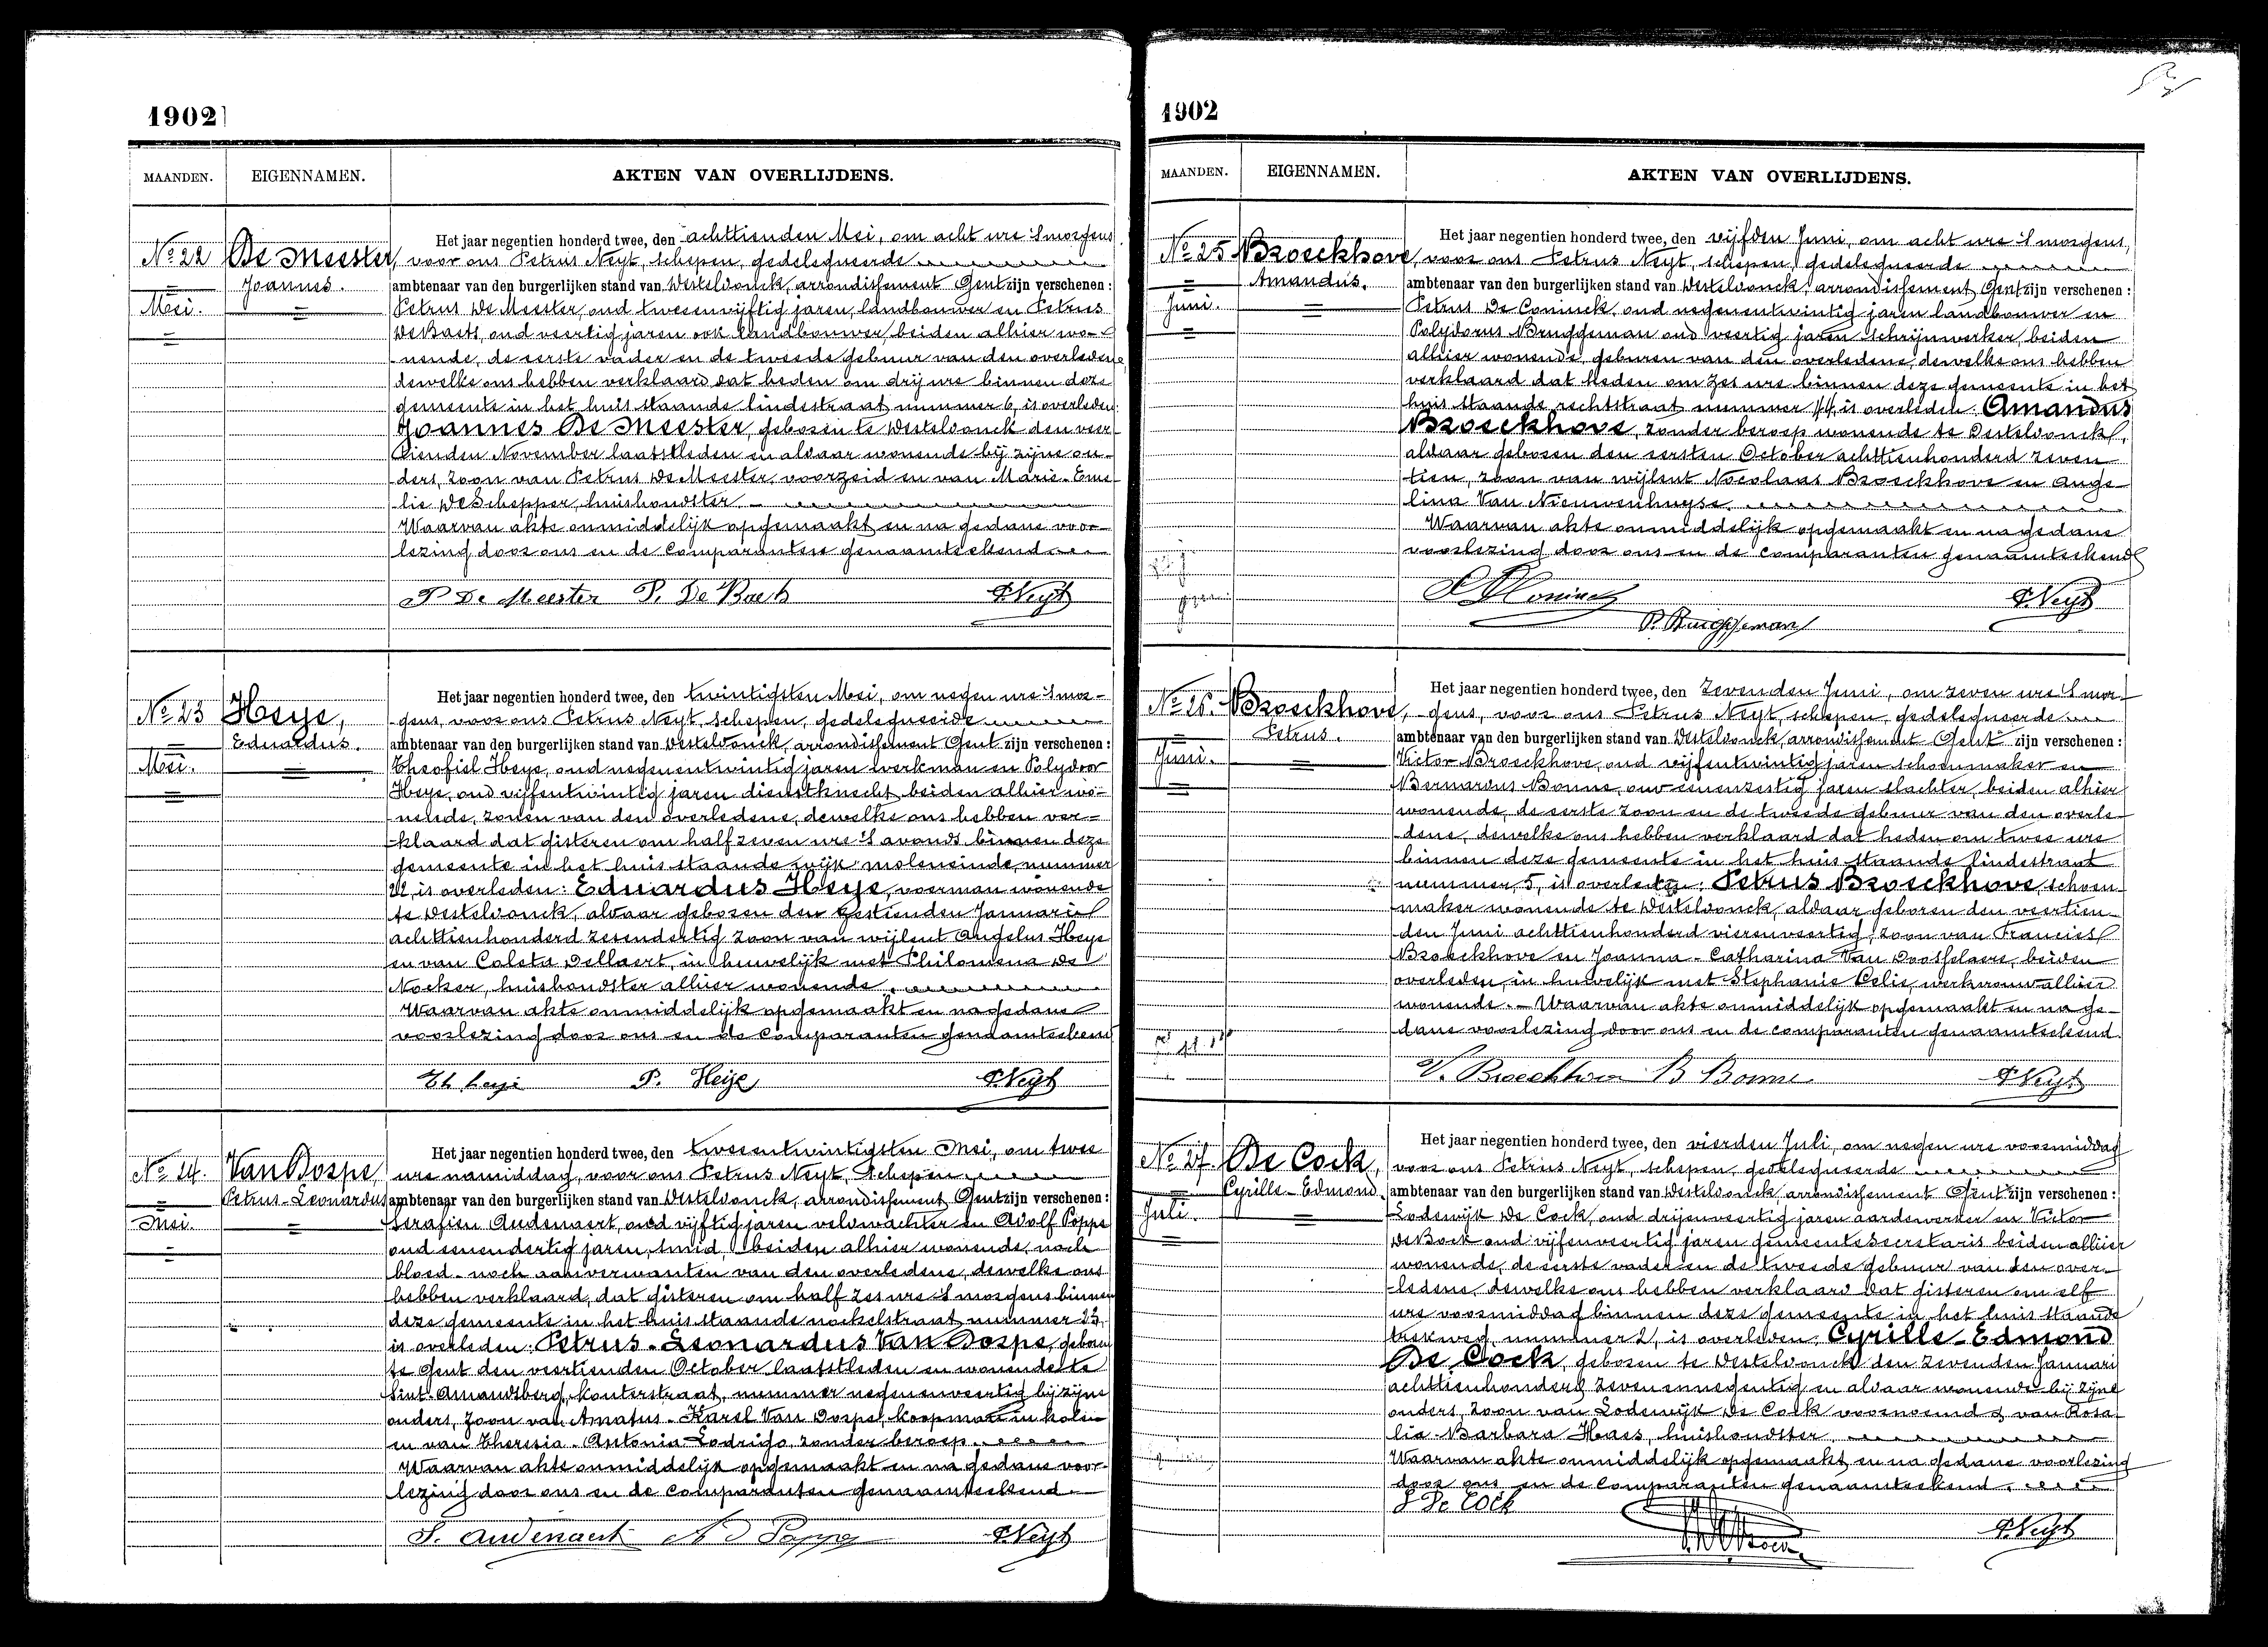 1902
MAANDEN.
EIGENNAMEN.
AKTEN VAN OVERLIJDENS.
No 22
De Meester,
Joannes.
Mei.
Het jaar negentien honderd twee, den achttienden Mei, om acht ure 's morgens
voor ons Petrus Neyt, schepen, gedelegueerde
ambtenaar van den burgerlijken stand van Desteldonck, arrondissement Gent zijn verschenen:
Petrus De Meester, oud tweeenvijftig jaren, landbouwer en Petrus
De Baets, oud veertig jaren ook landbouwer, beiden alhier wo-
nende, de eerste vader en de tweede gebuur van den overledene
dewelke ons hebben verklaard dat heden om drij ure binnen deze
gemeente in het huis staande lindestraat nummer 6, is overleden:
Joannes De Meester, geboren te Desteldonck den veer-
tienden November laatstleden en aldaar wonende bij zijne ou-
ders, zoon van Petrus De Meester, voorzeid en van Marie-Eme-
lie De Schepper, huishoudster.
Waarvan akte onmiddelijk opgemaakt en na gedane voor-
lezing door ons en de comparanten genaamteekend
P De Meester P. De Baets P. Neyt
No 23
Heye,
Eduardus.
Mei.
Het jaar negentien honderd twee, den twintigsten Mei, om negen ure 's mor-
gens, voor ons Petrus Neyt, schepen, gedelegueerde
ambtenaar van den burgerlijken stand van Desteldonck, arrondissement Gent zijn verschenen:
Theofiel Heye, oud negenentwintig jaren werkman en Polydoor
Heye, oud vijfentwintig jaren dienstknecht beiden alhier wo-
nende, zonen van den overledene, dewelke ons hebben ver-
klaard dat gisteren om half zeven ure 's avonds binnen deze
gemeente in het huis staande wijk moleneinde nummer
22 is overleden: Eduardus Heye, voerman wonende
te Desteldonck, aldaar geboren den zestienden Januari
achttienhonderd zesendertig zoon van wijlent Angelus Heye
en van Coleta Dellaert, in huwelijk met Philomena De
Nocker, huishoudster alhier wonende.
Waarvan akte onmiddelijk opgemaakt en na gedane
voorlezing door ons en de comparanten genaamteekend
Th heye P. Heye P. Neyt
No 24.
Van Dorpe,
Petrus-Leonardus
Mei.
Het jaar negentien honderd twee, den tweeentwintigsten Mei, om twee
ure namiddag, voor ons Petrus Neyt, schepen
ambtenaar van den burgerlijken stand van Desteldonck, arrondissement Gent zijn verschenen:
Serafien Audenaert, oud vijftig jaren veldwachter en Adolf Poppe
oud eenendertig jaren, smid, beiden alhier wonende, noch
bloed- noch aanverwanten van den overledene, dewelke ons
hebben verklaard, dat gisteren om half zes ure 's morgens binnen
deze gemeente in het huis staande nockelstraat nummer 23,
is overleden: Petrus-Leonardus Van Dorpe, geboren
te Gent den veertienden October laatstleden en wonende te
Sint-Amandsberg, Kouterstraat, nummer negenenveertig bij zijne
ouders, zoon van Amatus-Karel Van Dorpe, koopman in kolen
en van Theresia-Antonia Lodrigo, zonder beroep.
Waarvan akte onmiddelijk opgemaakt en na gedane voor-
lezing door ons en de comparanten genaamteekend.
S. Audenaert A D Poppe P. Neyt
1902
MAANDEN.
EIGENNAMEN.
AKTEN VAN OVERLIJDENS.
No 25
Broeckhove,
Amandus.
Juni.
Het jaar negentien honderd twee, den vijfden Juni, om acht ure 's morgens,
voor ons Petrus Neyt, schepen, gedelegueerde
ambtenaar van den burgerlijken stand van Desteldonck, arrondissement Gent zijn verschenen:
Petrus De Coninck, oud negenentwintig jaren landbouwer en
Polydorus Bruggeman oud veertig jaren schrijnwerker, beiden
alhier wonende, geburen van den overledene, dewelke ons hebben
verklaard dat heden om zes ure binnen deze gemeente in het
huis staande rechtstraat nummer 44, is overleden Amandus
Broeckhove, zonder beroep wonende te Desteldonck,
aldaar geboren den eersten October achttienhonderd zeven-
tien, zoon van wijlent Nocolaas Broeckhove en Ange-
lina Van Nieuwenhuyse.
Waarvan akte onmiddelijk opgemaakt en na gedane
voorlezing door ons en de comparanten genaamteekend
P. De Coninck P. Neyt
P. Bruggeman
No 26.
Broeckhove,
Petrus.
Juni.
Het jaar negentien honderd twee, den zevenden Juni, om zeven ure 's mor-
gens, voor ons Petrus Neyt, schepen, gedelegueerde
ambtenaar van den burgerlijken stand van Desteldonck, arrondissement Gent zijn verschenen:
Victor Broeckhove, oud vijfentwintig jaren schoenmaker en
Bernardus Bonne, oud eenenzestig jaren slachter, beiden alhier
wonende, de eerste zoon en de tweede gebuur van den overle-
dene, dewelke ons hebben verklaard dat heden om twee ure
binnen deze gemeente in het huis staande lindestraat
nummer, 5, is overleden: Petrus Broeckhove, schoen-
maker wonende te Desteldonck, aldaar geboren den veertien-
den Juni achttienhonderd vierenveertig, zoon van Francies
Broeckhove en Joanna-Catharina Van Doosselaere, beiden
overleden, in huwelijk met Stephanie Celie, werkvrouw alhier
wonende. - Waarvan akte onmiddelijk opgemaakt en na ge-
dane voorlezing door ons en de comparanten genaamteekend.
V. Broeckhove B Bonne P. Neyt
No 27.
De Cock,
Cyrille-Edmond.
Juli.
Het jaar negentien honderd twee, den vierden Juli, om negen ure voormiddag
voor ons Petrus Neyt, schepen, gedelegueerde
ambtenaar van den burgerlijken stand van Desteldonck, arrondissement Gent zijn verschenen:
Lodewijk De Cock, oud drijenveertig jaren aardewerker en Victor
De Bock oud vijfenveertig jaren gemeentesecretaris beiden alhier
wonende, de eerste vader en de tweede gebuur van den over-
ledene, dewelke ons hebben verklaard dat gisteren om elf
ure voormiddag binnen deze gemeente in het huis staande
trekweg, nummer 2, is overleden, Cyrille-Edmond
De Cock, geboren te Desteldonck den zevenden Januari
achttienhonderd zevenennegentig en aldaar wonende bij zijne
ouders, zoon van Lodewijk De Cock voornoemd & van Rosa-
lia-Barbara Haes, huishoudster.
Waarvan akte onmiddelijk opgemaakt en na gedane voorlezing
door ons en de comparanten genaamteekend.
L De Cock
P. Neyt